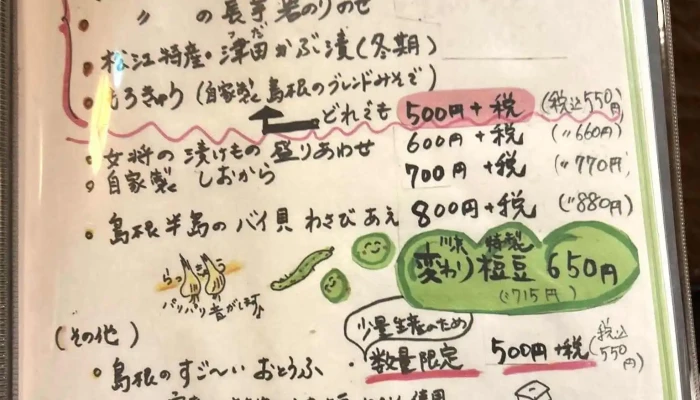 〃 の長芋岩のりのせ
・松江特産・津田かぶ漬(冬期)
つだ
・もろきゅう(自家製と島根のブレンドみそで)
どれでも 500円+税 (税込550円)
・女将の漬けもの盛りあわせ 600円+税 (〃660円)
・自家製 しおから 700円+税 (〃770円)
・島根半島のバイ貝 わさびあえ 800円+税 (〃880円)
特製
変わり枝豆 650円
(〃715円)
らっきょ
パリパリ音がします♪
(その他)
少量生産のため
・島根のすご〜いおとうふ ・数量限定 500円+税 (税込550円)